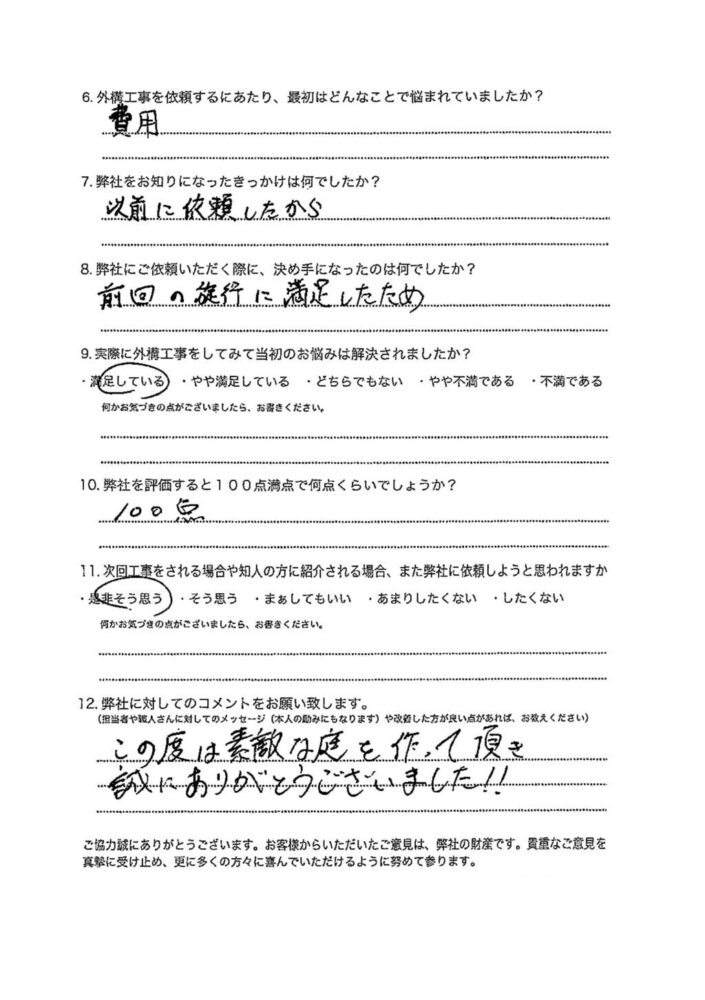 6. 外構工事を依頼するにあたり、最初はどんなことで悩まれていましたか？
費用
7. 弊社をお知りになったきっかけは何でしたか？
以前に依頼したから
8. 弊社にご依頼いただく際に、決め手になったのは何でしたか？
前回の旋行に満足したため
9. 実際に外構工事をしてみて当初のお悩みは解決されましたか？
・満足している ・やや満足している ・どちらでもない ・やや不満である ・不満である
何かお気づきの点がございましたら、お書きください。
10. 弊社を評価すると１００点満点で何点くらいでしょうか？
100点
11. 次回工事をされる場合や知人の方に紹介される場合、また弊社に依頼しようと思われますか
・是非そう思う ・そう思う ・まぁしてもいい ・あまりしたくない ・したくない
何かお気づきの点がございましたら、お書きください。
12. 弊社に対してのコメントをお願い致します。
（担当者や職人さんに対してのメッセージ（本人の励みにもなります）や改善した方が良い点があれば、お教えください）
この度は素敵な庭を作って頂き
誠にありがとうございました!!
ご協力誠にありがとうございます。お客様からいただいたご意見は、弊社の財産です。貴重なご意見を
真摯に受け止め、更に多くの方々に喜んでいただけるように努めて参ります。